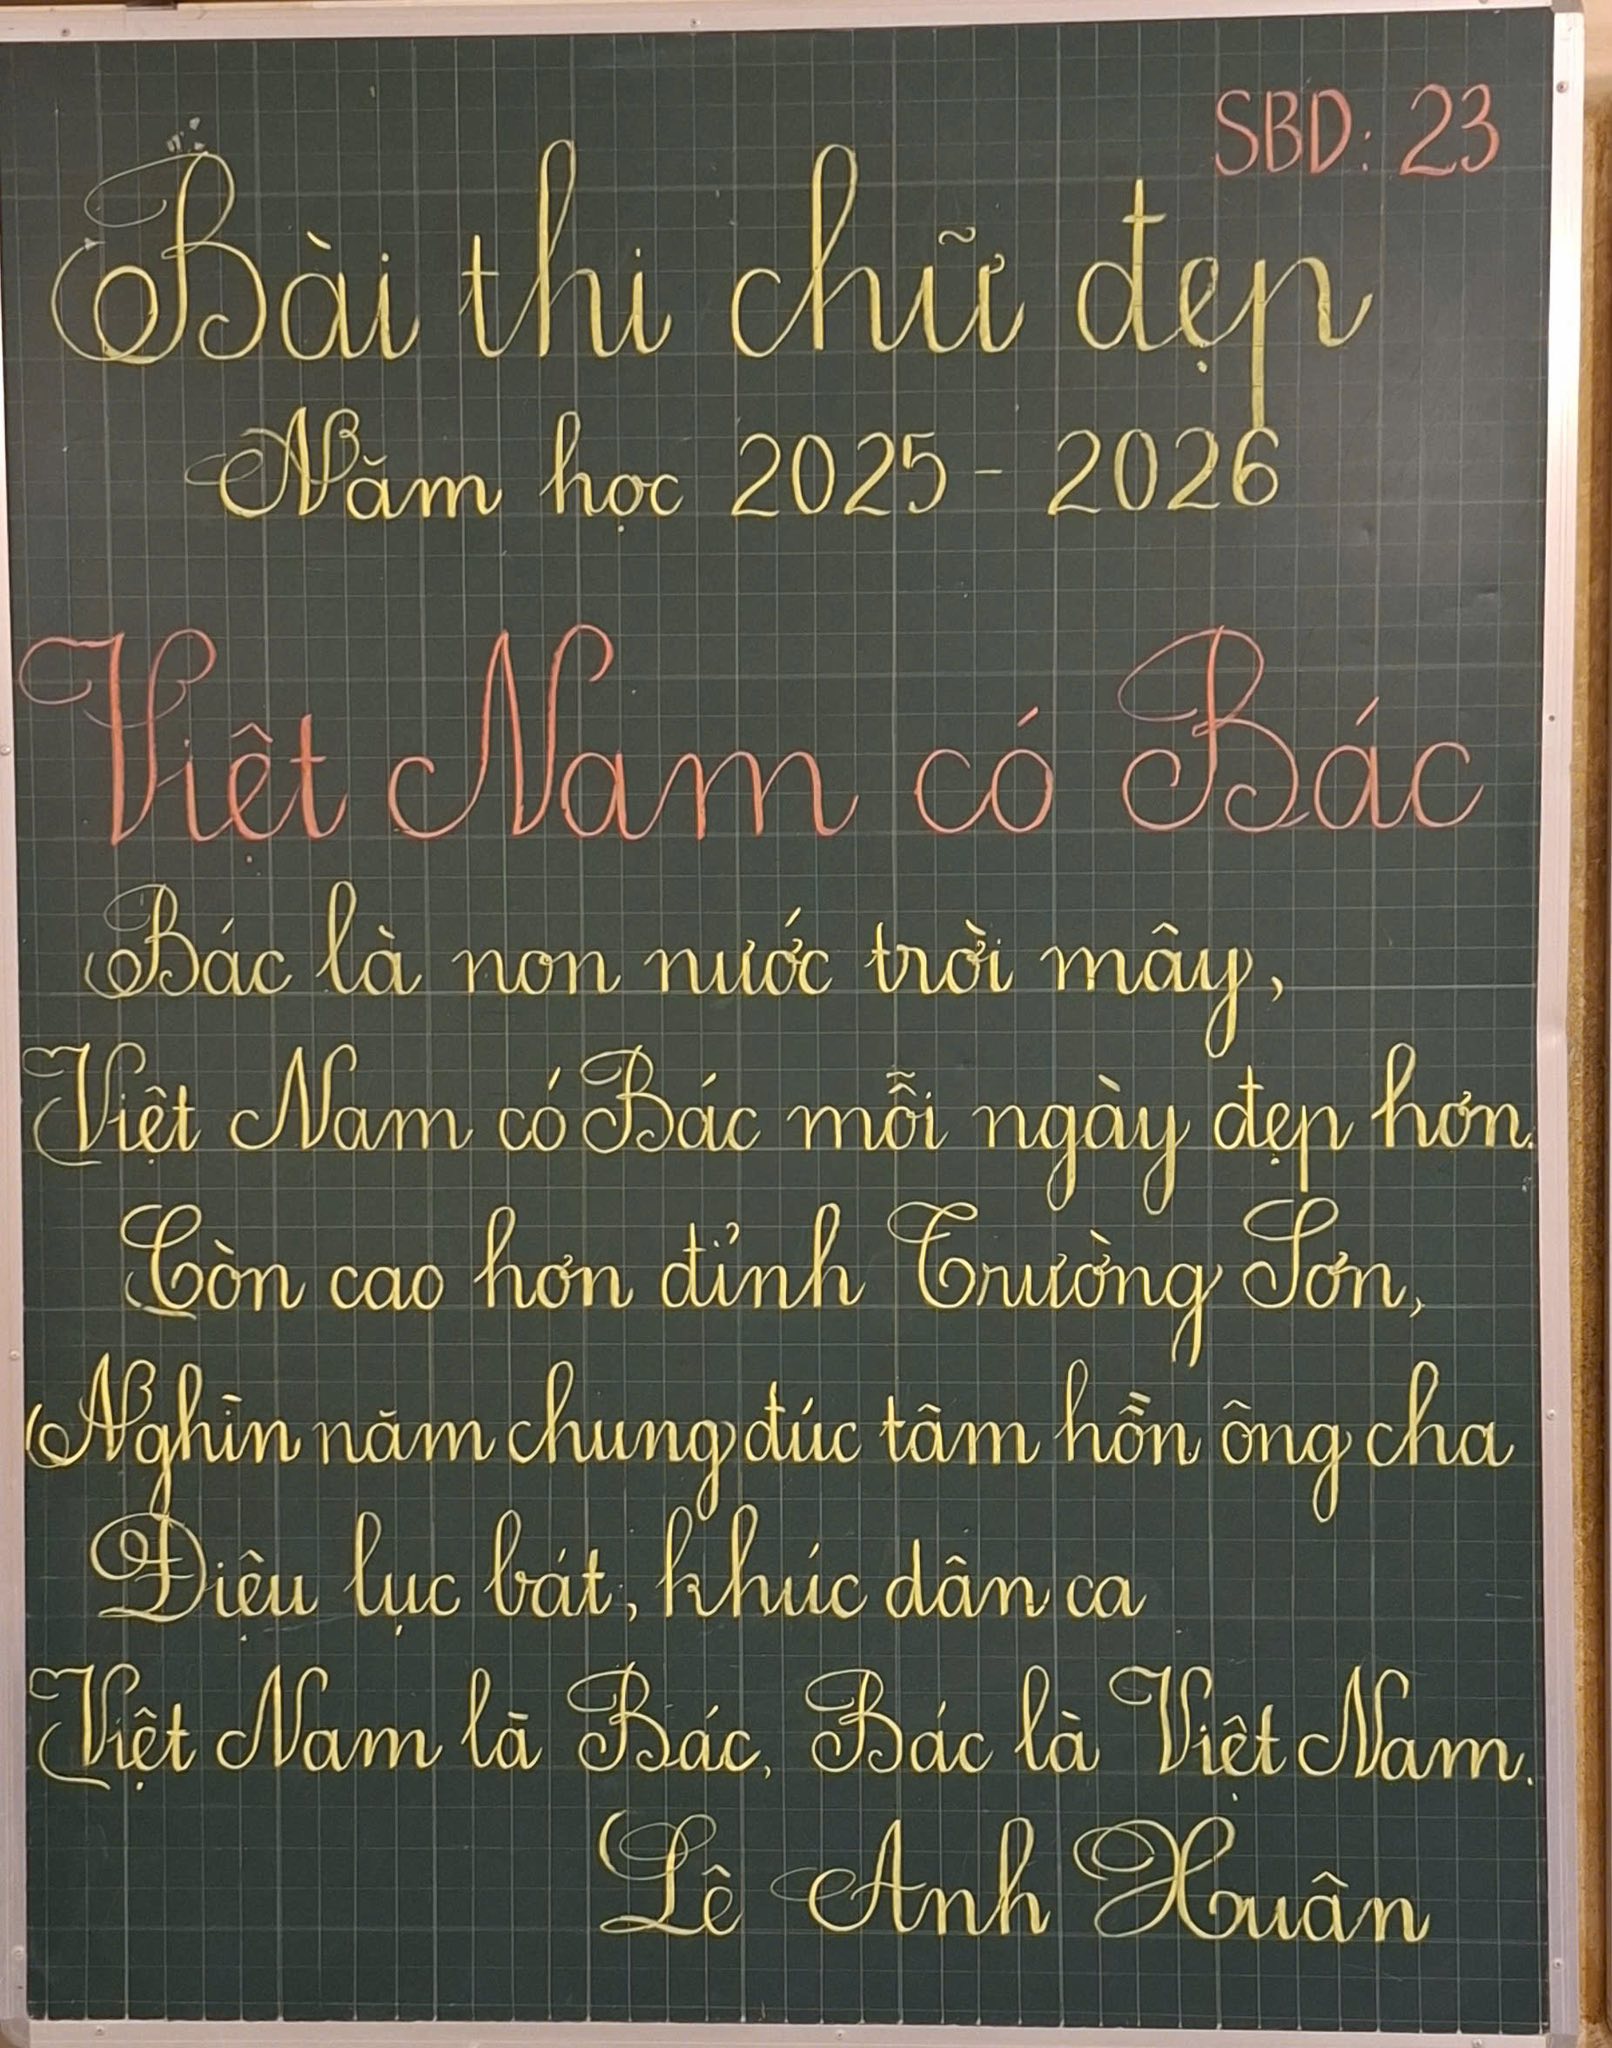 SBD: 23
Bài thi chữ đẹp
Năm học 2025 - 2026
Việt Nam có Bác
Bác là non nước trời mây,
Việt Nam có Bác mỗi ngày đẹp hơn.
Còn cao hơn đỉnh Trường Sơn,
Nghìn năm chung đúc tâm hồn ông cha
Điệu lục bát, khúc dân ca
Việt Nam là Bác, Bác là Việt Nam.
Lê Anh Xuân